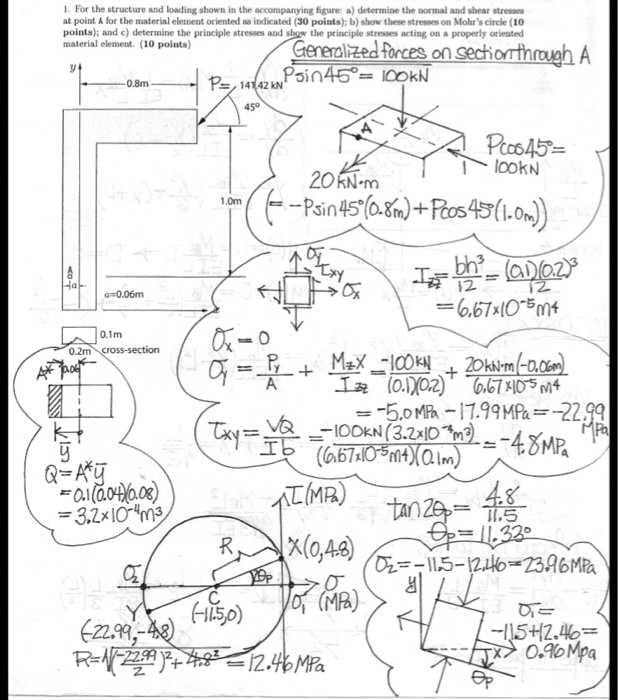 1. For the structure and loading shown in the accompanying figure: a) determine the normal and shear stresses
at point A for the material element oriented as indicated (30 points); b) show these stresses on Mohr's circle (10
points); and c) determine the principle stresses and show the principle stresses acting on a properly oriented
material element. (10 points)
Generalized forces on section through A
y
0.8m
P= 141.42 kN
45°
Psin45° = 100kN
A
Pcos45°=
100kN
20kN·m
(= -Psin45°(0.8m)+Pcos45°(1.0m))
1.0m
A
a
a=0.06m
0.1m
0.2m cross-section
σy
τxy
σx
Izz = bh³/12 = (0.1)(0.2)³/12
= 6.67x10⁻⁵m4
σx = 0
σy = Py/A + MzX/Izz = -100kN/(0.1)(0.2) + 20kN·m(-0.06m)/6.67x10⁻⁵m4
= -5.0MPa - 17.99MPa = -22.99
MPa
τxy = VQ/Ib = -100kN(3.2x10⁻⁴m³)/(6.67x10⁻⁵m4)(0.1m) = -4.8MPa
A* 0.06
ȳ
Q = A*ȳ
= 0.1(0.04)(0.08)
= 3.2x10⁻⁴m³
τ(MPa)
R
X(0,4.8)
σ2
2θp
σ
σ1
(MPa)
Y
C
(-11.5,0)
(-22.99,-4.8)
R=√(-22.99/2)²+4.8² = 12.46MPa
tan2θp = 4.8/11.5
θp = 11.33°
σ2 = -11.5-12.46=23.96MPa
y
σ1=
-11.5+12.46=
0.96Mpa
x
θp